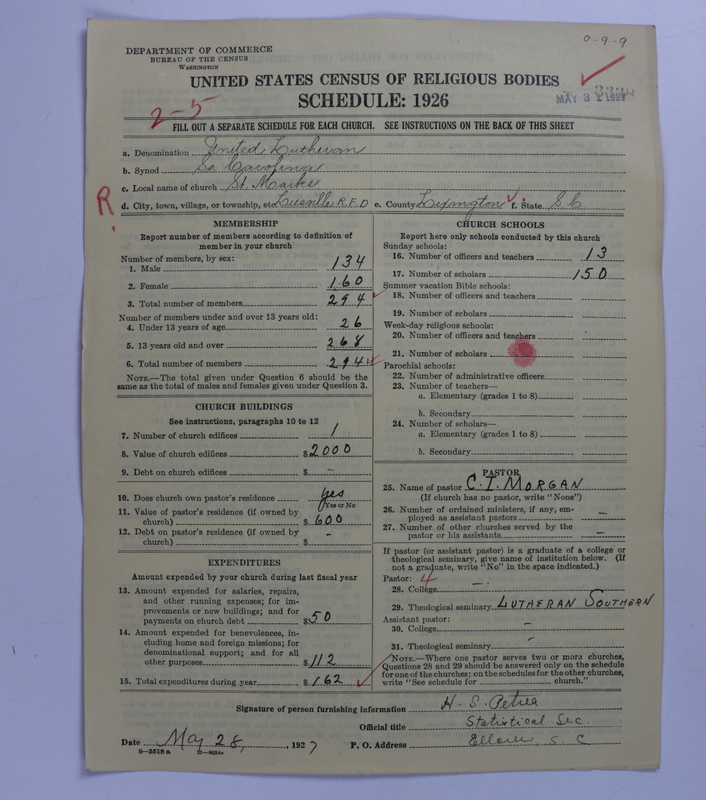 0-9-9
DEPARTMENT OF COMMERCE
BUREAU OF THE CENSUS
WASHINGTON
UNITED STATES CENSUS OF RELIGIOUS BODIES
SCHEDULE: 1926
MAY 31 1927
2-5
FILL OUT A SEPARATE SCHEDULE FOR EACH CHURCH. SEE INSTRUCTIONS ON THE BACK OF THIS SHEET
a. Denomination United Lutheran
b. Synod So. Carolina
c. Local name of church St. Marks
R
d. City, town, village, or township, etc. R.F.D e. County Lexington f. State S.C.
MEMBERSHIP
Report number of members according to definition of
member in your church
Number of members, by sex:
1. Male 134
2. Female 160
3. Total number of members 294
Number of members under and over 13 years old:
4. Under 13 years of age 26
5. 13 years old and over 268
6. Total number of members 294
NOTE.—The total given under Question 6 should be the
same as the total of males and females given under Question 3.
CHURCH BUILDINGS
See instructions, paragraphs 10 to 12
7. Number of church edifices 1
8. Value of church edifices $2000
9. Debt on church edifices $ –
10. Does church own pastor's residence yes
Yes or No
11. Value of pastor's residence (if owned by
church) $600
12. Debt on pastor's residence (if owned by
church) $ –
EXPENDITURES
Amount expended by your church during last fiscal year
13. Amount expended for salaries, repairs,
and other running expenses; for im-
provements or new buildings; and for
payments on church debt $50
14. Amount expended for benevolences, in-
cluding home and foreign missions; for
denominational support; and for all
other purposes $112
15. Total expenditures during year $162
CHURCH SCHOOLS
Report here only schools conducted by this church
Sunday schools:
16. Number of officers and teachers 13
17. Number of scholars 150
Summer vacation Bible schools:
18. Number of officers and teachers
19. Number of scholars
Week-day religious schools:
20. Number of officers and teachers
21. Number of scholars
Parochial schools:
22. Number of administrative officers
23. Number of teachers—
a. Elementary (grades 1 to 8)
b. Secondary
24. Number of scholars—
a. Elementary (grades 1 to 8)
b. Secondary
PASTOR
25. Name of pastor C. I. MORGAN
(If church has no pastor, write "None")
26. Number of ordained ministers, if any, em-
ployed as assistant pastors –
27. Number of other churches served by the
pastor or his assistants –
If pastor (or assistant pastor) is a graduate of a college or
theological seminary, give name of institution below. (If
not a graduate, write "No" in the space indicated.)
Pastor: 4
28. College –
29. Theological seminary LUTHERAN SOUTHERN
Assistant pastor:
30. College –
31. Theological seminary –
NOTE.—Where one pastor serves two or more churches,
Questions 28 and 29 should be answered only on the schedule
for one of the churches; on the schedules for the other churches,
write "See schedule for church."
Signature of person furnishing information H. S. Petrea
Official title Statistical Sec.
Date May 28, 1927 P. O. Address Elloree, S. C
8—5518a